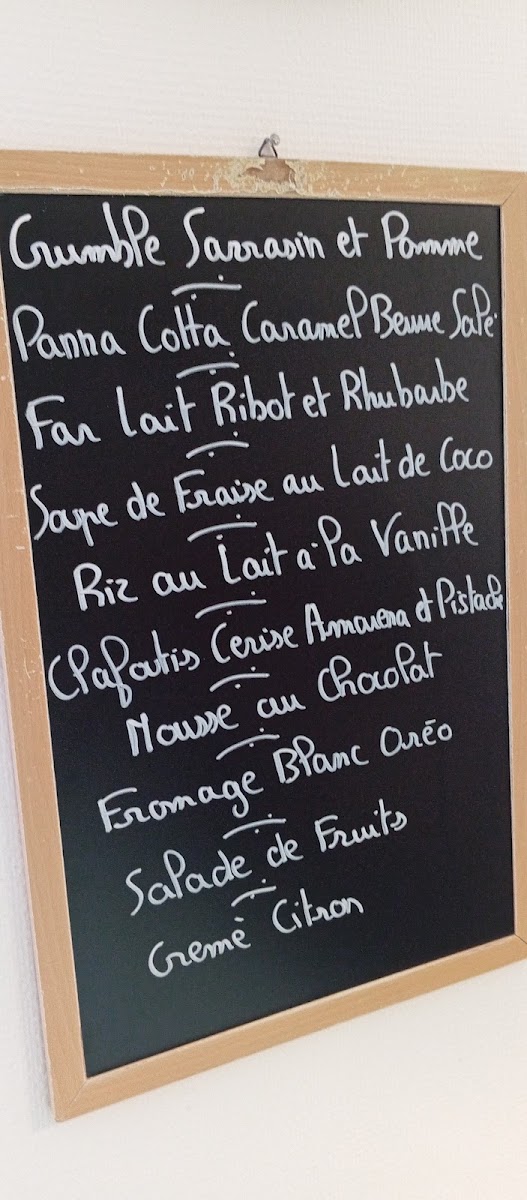 Crumble Sarrasin et Pomme
Panna Cotta Caramel Beurre Salé
Far Lait Ribot et Rhubarbe
Soupe de Fraise au Lait de Coco
Riz au Lait a la Vanille
Clafoutis Cerise Amarena et Pistache
Mousse au Chocolat
Fromage Blanc Oréo
Salade de Fruits
Creme Citron